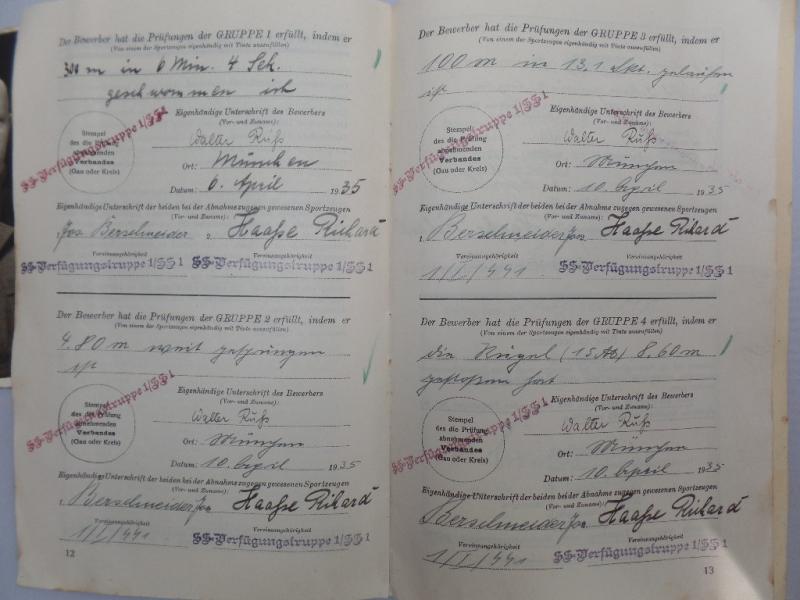 Der Bewerber hat die Prüfungen der GRUPPE 1 erfüllt, indem er
(Von einem der Sportzeugen eigenhändig mit Tinte auszufüllen)
300 m in 6 Min. 4 Sek.
geschwommen ist
SS-Verfügungstruppe 1/SS 1
Stempel
des die Prüfung
abnehmenden
Verbandes
(Gau oder Kreis)
Eigenhändige Unterschrift des Bewerbers
(Vor- und Zuname):
Walter Ruß
Ort: München
Datum: 6. April 1935
Eigenhändige Unterschrift der beiden bei der Abnahme zugegen gewesenen Sportzeugen
(Vor- und Zuname):
Berschneider Haaße Richard
Vereinsangehörigkeit
SS-Verfügungstruppe 1/SS 1 SS-Verfügungstruppe 1/SS 1
Der Bewerber hat die Prüfungen der GRUPPE 2 erfüllt, indem er
(Von einem der Sportzeugen eigenhändig mit Tinte auszufüllen)
4.80 m weit gesprungen
ist
SS-Verfügungstruppe 1/SS 1
Stempel
des die Prüfung
abnehmenden
Verbandes
(Gau oder Kreis)
Eigenhändige Unterschrift des Bewerbers
(Vor- und Zuname):
Walter Ruß
Ort: München
Datum: 10. April 1935
Eigenhändige Unterschrift der beiden bei der Abnahme zugegen gewesenen Sportzeugen
(Vor- und Zuname):
Berschneider Haaße Richard
Vereinsangehörigkeit
SS-Verfügungstruppe 1/SS 1
12
Der Bewerber hat die Prüfungen der GRUPPE 3 erfüllt, indem er
(Von einem der Sportzeugen eigenhändig mit Tinte auszufüllen)
100 m in 13,1 Sek. gelaufen
ist
SS-Verfügungstruppe 1/SS 1
Stempel
des die Prüfung
abnehmenden
Verbandes
(Gau oder Kreis)
Eigenhändige Unterschrift des Bewerbers
(Vor- und Zuname):
Walter Ruß
Ort: München
Datum: 10. April 1935
Eigenhändige Unterschrift der beiden bei der Abnahme zugegen gewesenen Sportzeugen
(Vor- und Zuname):
Berschneider Haaße Richard
Vereinsangehörigkeit
SS-Verfügungstruppe 1/SS 1
Der Bewerber hat die Prüfungen der GRUPPE 4 erfüllt, indem er
(Von einem der Sportzeugen eigenhändig mit Tinte auszufüllen)
die Kugel 8.60 m
gestoßen hat
SS-Verfügungstruppe 1/SS 1
Stempel
des die Prüfung
abnehmenden
Verbandes
(Gau oder Kreis)
Eigenhändige Unterschrift des Bewerbers
(Vor- und Zuname):
Walter Ruß
Ort: München
Datum: 10. April 1935
Eigenhändige Unterschrift der beiden bei der Abnahme zugegen gewesenen Sportzeugen
(Vor- und Zuname):
Berschneider Haaße Richard
Vereinsangehörigkeit
SS-Verfügungstruppe 1/SS 1
13